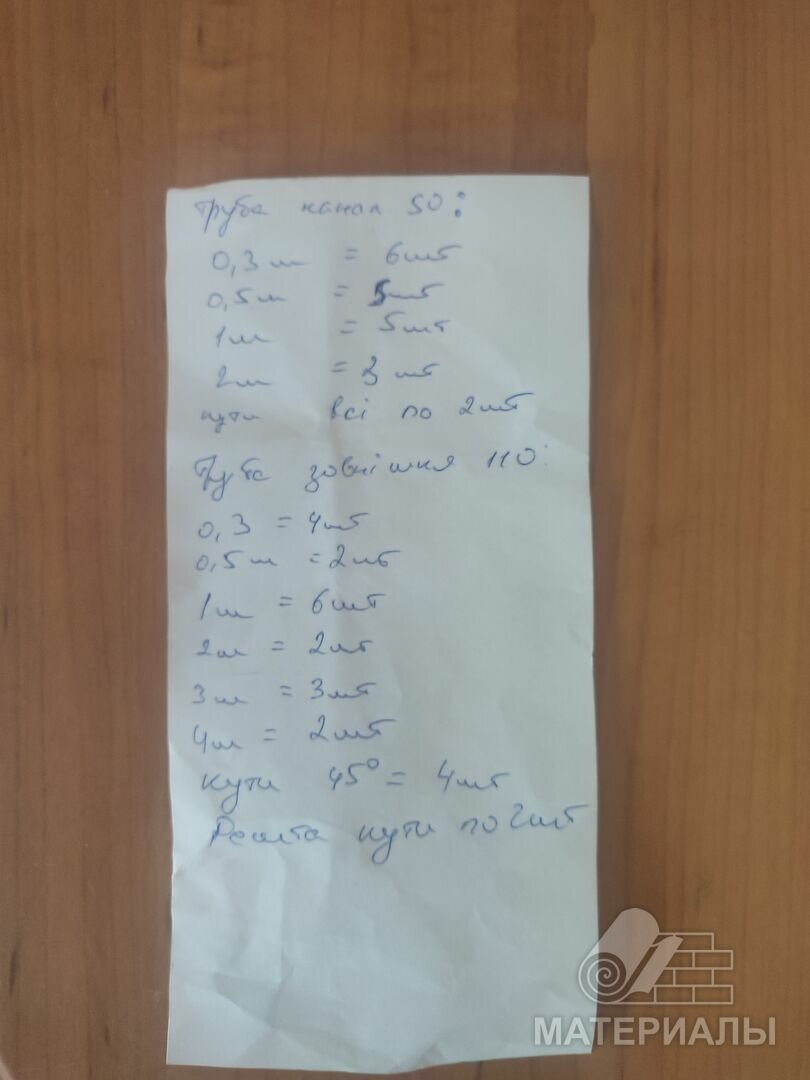 труба канал 50:
0,3м = 6шт
0,5м = 5шт
1м = 5шт
2м = шт
кути всі по 2шт
Труба зовнішня 110:
0,3 = 4шт
0,5м = 2шт
1м = 6шт
2м = 2шт
3м = 3шт
4м = 2шт
Кути 45° = 4шт
Решта кути по 2шт
МАТЕРИАЛЫ